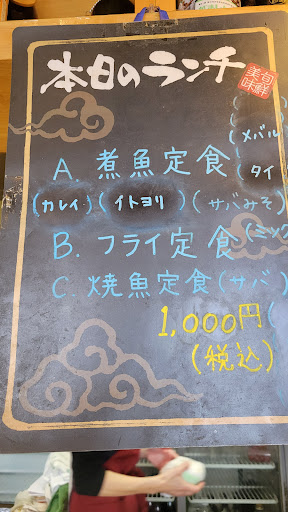 本日のランチ
旬鮮美味
(メバル
A. 煮魚定食 タイ
(カレイ)(イトヨリ)(サバみそ)
B. フライ定食(ミック
C. 焼魚定食(サバ)
1,000円(
(税込)